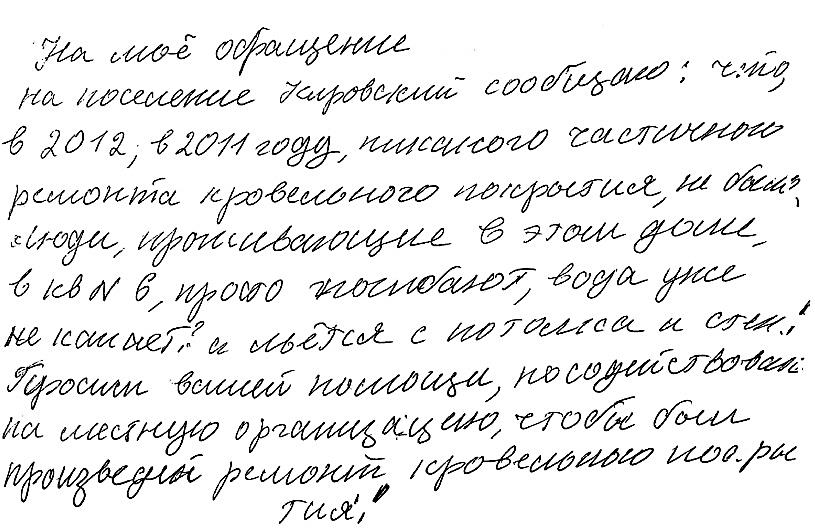 На моё обращение
на поселение Кировский сообщаю: что,
в 2012, в 2011 году, никакого частичного
ремонта кровельного покрытия, не было,
люди, проживающие в этом доме,
в кв N 6, просто погибают, вода уже
не капает? а льётся с потолка и стен!
Просим вашей помощи, посодействовать
на местную организацию, чтобы был
произведён ремонт кровельного покры
тия!